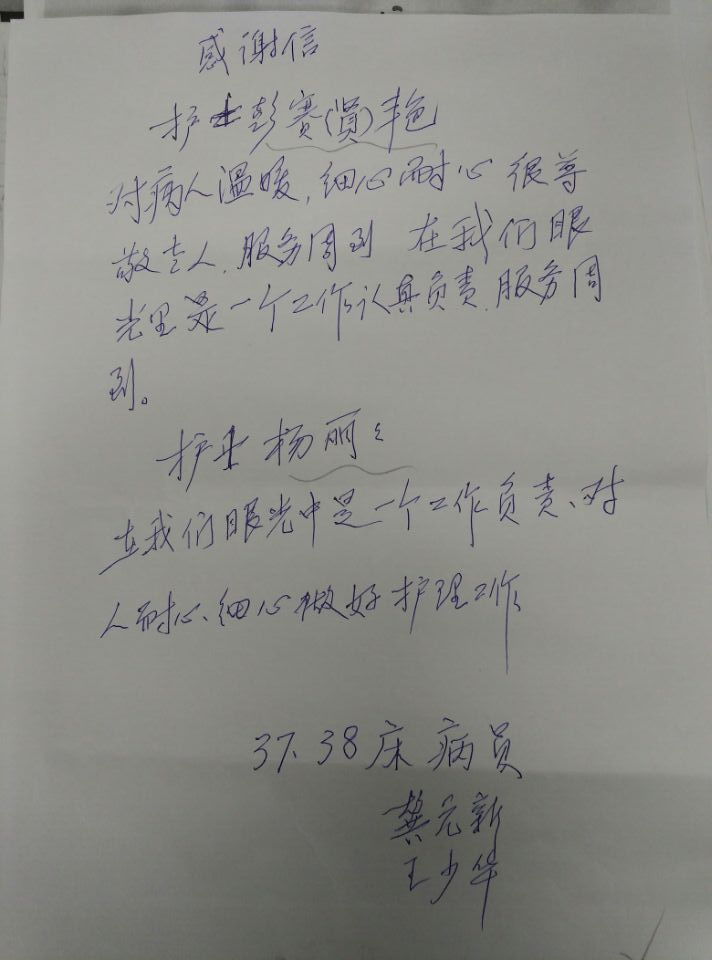 感谢信
护士彭赛(贤)艳
对病人温暖,细心耐心 很尊
敬老人.服务周到 在我们眼
光里是一个工作认真负责.服务周
到。
护士杨丽々
在我们眼光中是一个工作负责、对
人耐心、细心做好护理工作
37.38床病员
龚元新
王少华